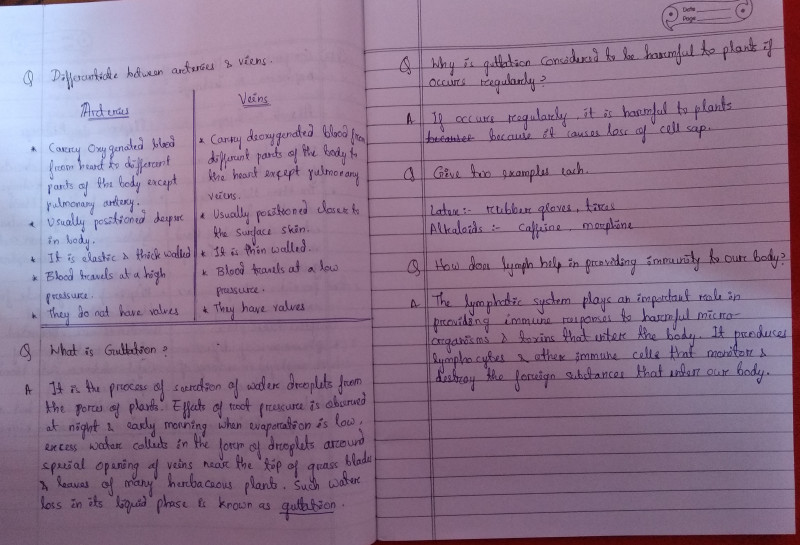 Q Differentiate between arteries & viens.
Arteries
* Carry Oxygenated blood
from heart to different
parts of the body except
pulmonary artery.
* Usually positioned deeper
in body.
* It is elastic & thick walled
* Blood travels at a high
pressure.
* They do not have valves
Veins
* Carry deoxygenated blood from
different parts of the body to
the heart except pulmonary
veins.
* Usually positioned closer to
the surface skin.
* It is thin walled.
* Blood travels at a low
pressure.
* They have valves
Q What is Guttation?
A It is the process of secretion of water droplets from
the pores of plants. Effects of root pressure is observed
at night & early morning when evaporation is low,
excess water collects in the form of droplets around
special opening of veins near the tip of grass blades
& leaves of many herbaceous plants. Such water
loss in its liquid phase is known as guttation.
Date
Page
Q Why is guttation considered to be harmful to plants if
occurs regularly?
A If occurs regularly, it is harmful to plants
because because it causes loss of cell sap.
Q Give two examples each.
Latex :- rubber gloves, tires
Alkaloids :- caffeine, morphine
Q How does lymph help in providing immunity to our body?
A The lymphatic system plays an important role in
providing immune responses to harmful micro-
organisms & toxins that enter the body. It produces
lymphocytes & other immune cells that monitor &
destroy the foreign substances that enter our body.